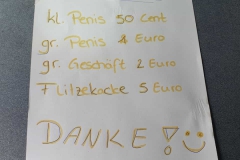 kl. Penis 50 Cent
gr. Penis 1 Euro
gr. Geschäft 2 Euro
Flitzekacke 5 Euro
DANKE!